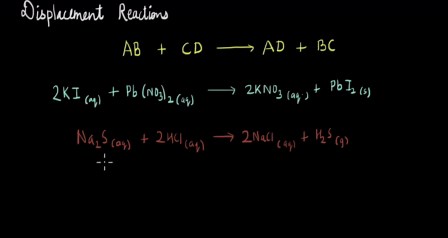 Displacement Reactions
AB + CD → AD + BC
2KI (aq) + Pb(NO3)2 (aq) → 2KNO3 (aq) + PbI2 (s)
Na2S (aq) + 2HCl (aq) → 2NaCl (aq) + H2S (g)